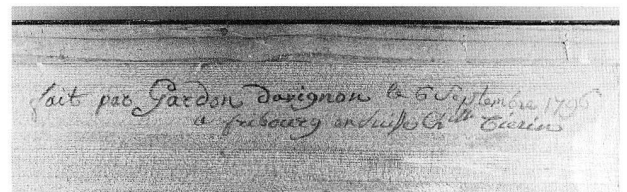 fait par Gardon Davignon le 6 Septembre 1796
a fribourg en Suisse Ch